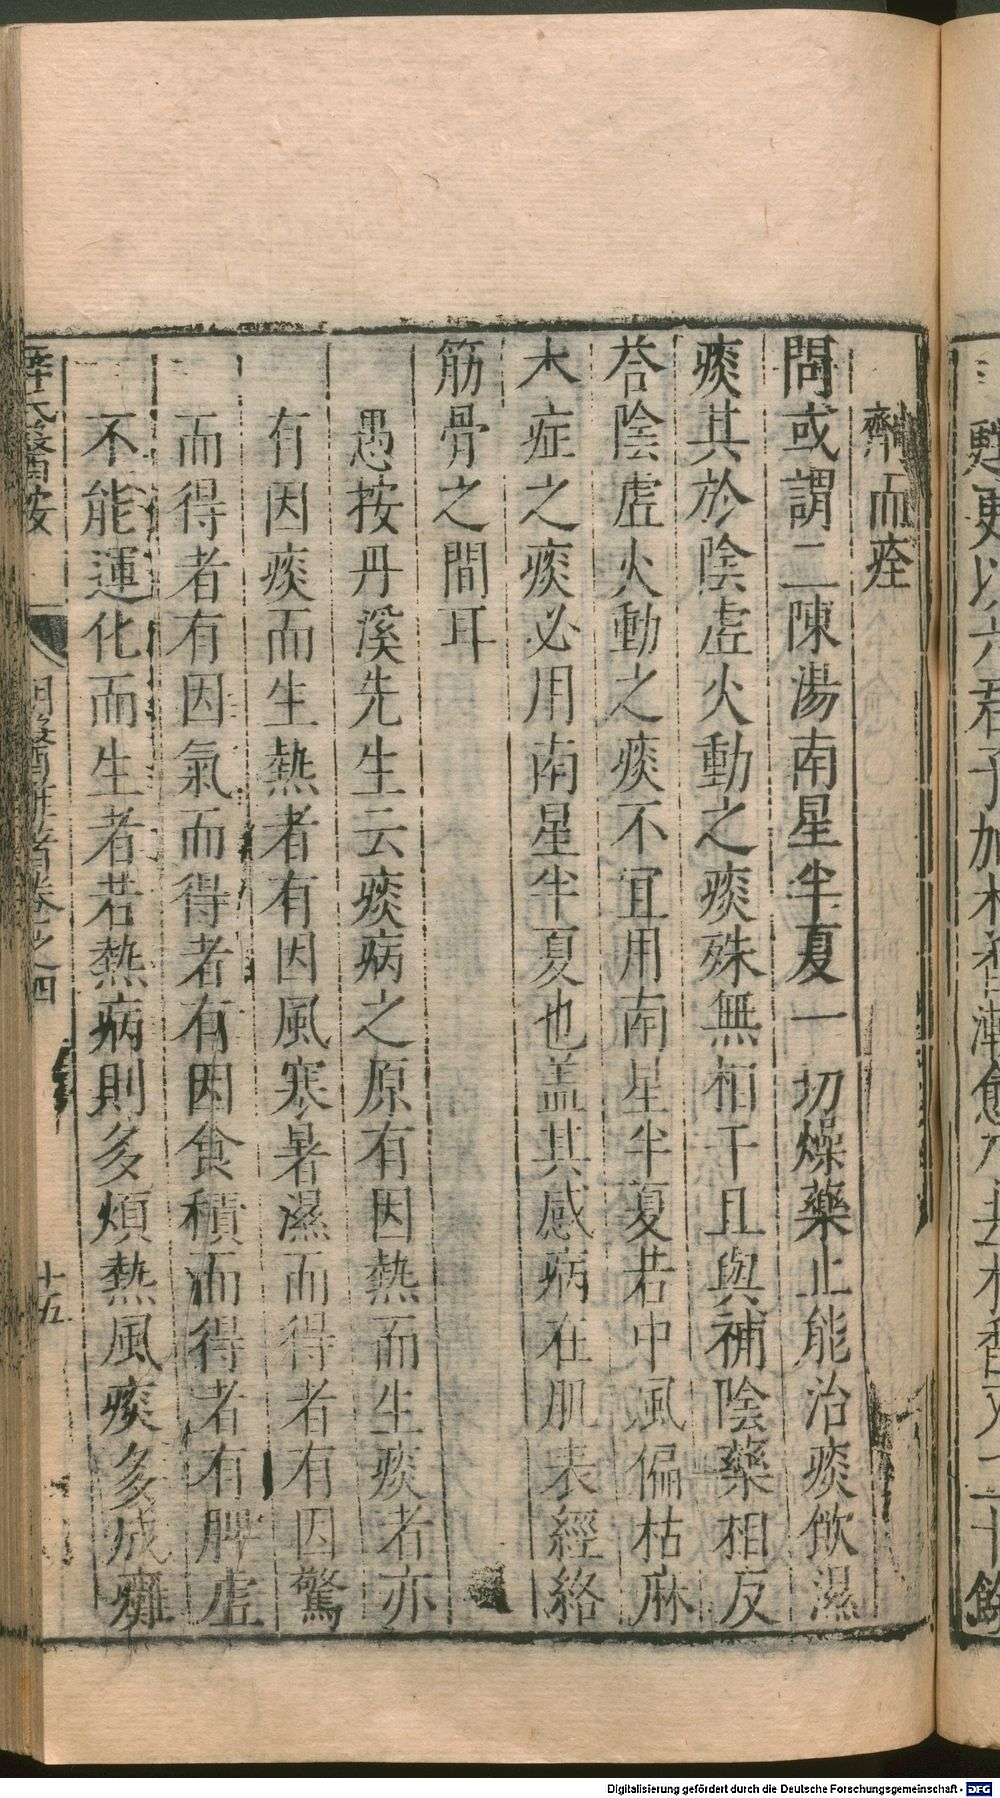 劑而痊
問或謂二陳湯南星半夏一切燥藥止能治痰飲濕
痰其於陰虛火動之痰殊無相干且與補陰藥相反
荅陰虛火動之痰不宜用南星半夏若中風偏枯麻
木症之痰必用南星半夏也盖其感病在肌表經絡
筋骨之間耳
愚按丹溪先生云痰病之原有因熱而生痰者亦
有因痰而生熱者有因風寒暑濕而得者有因驚
而得者有因氣而得者有因食積而得者有脾虛
不能運化而生者若熱病則多煩熱風痰多成癱
薛氏醫按
明醫雜著卷之四
十五
更以六君子加木香
愈乃去木香又二十餘
Digitalisierung gefördert durch die Deutsche Forschungsgemeinschaft - DFG